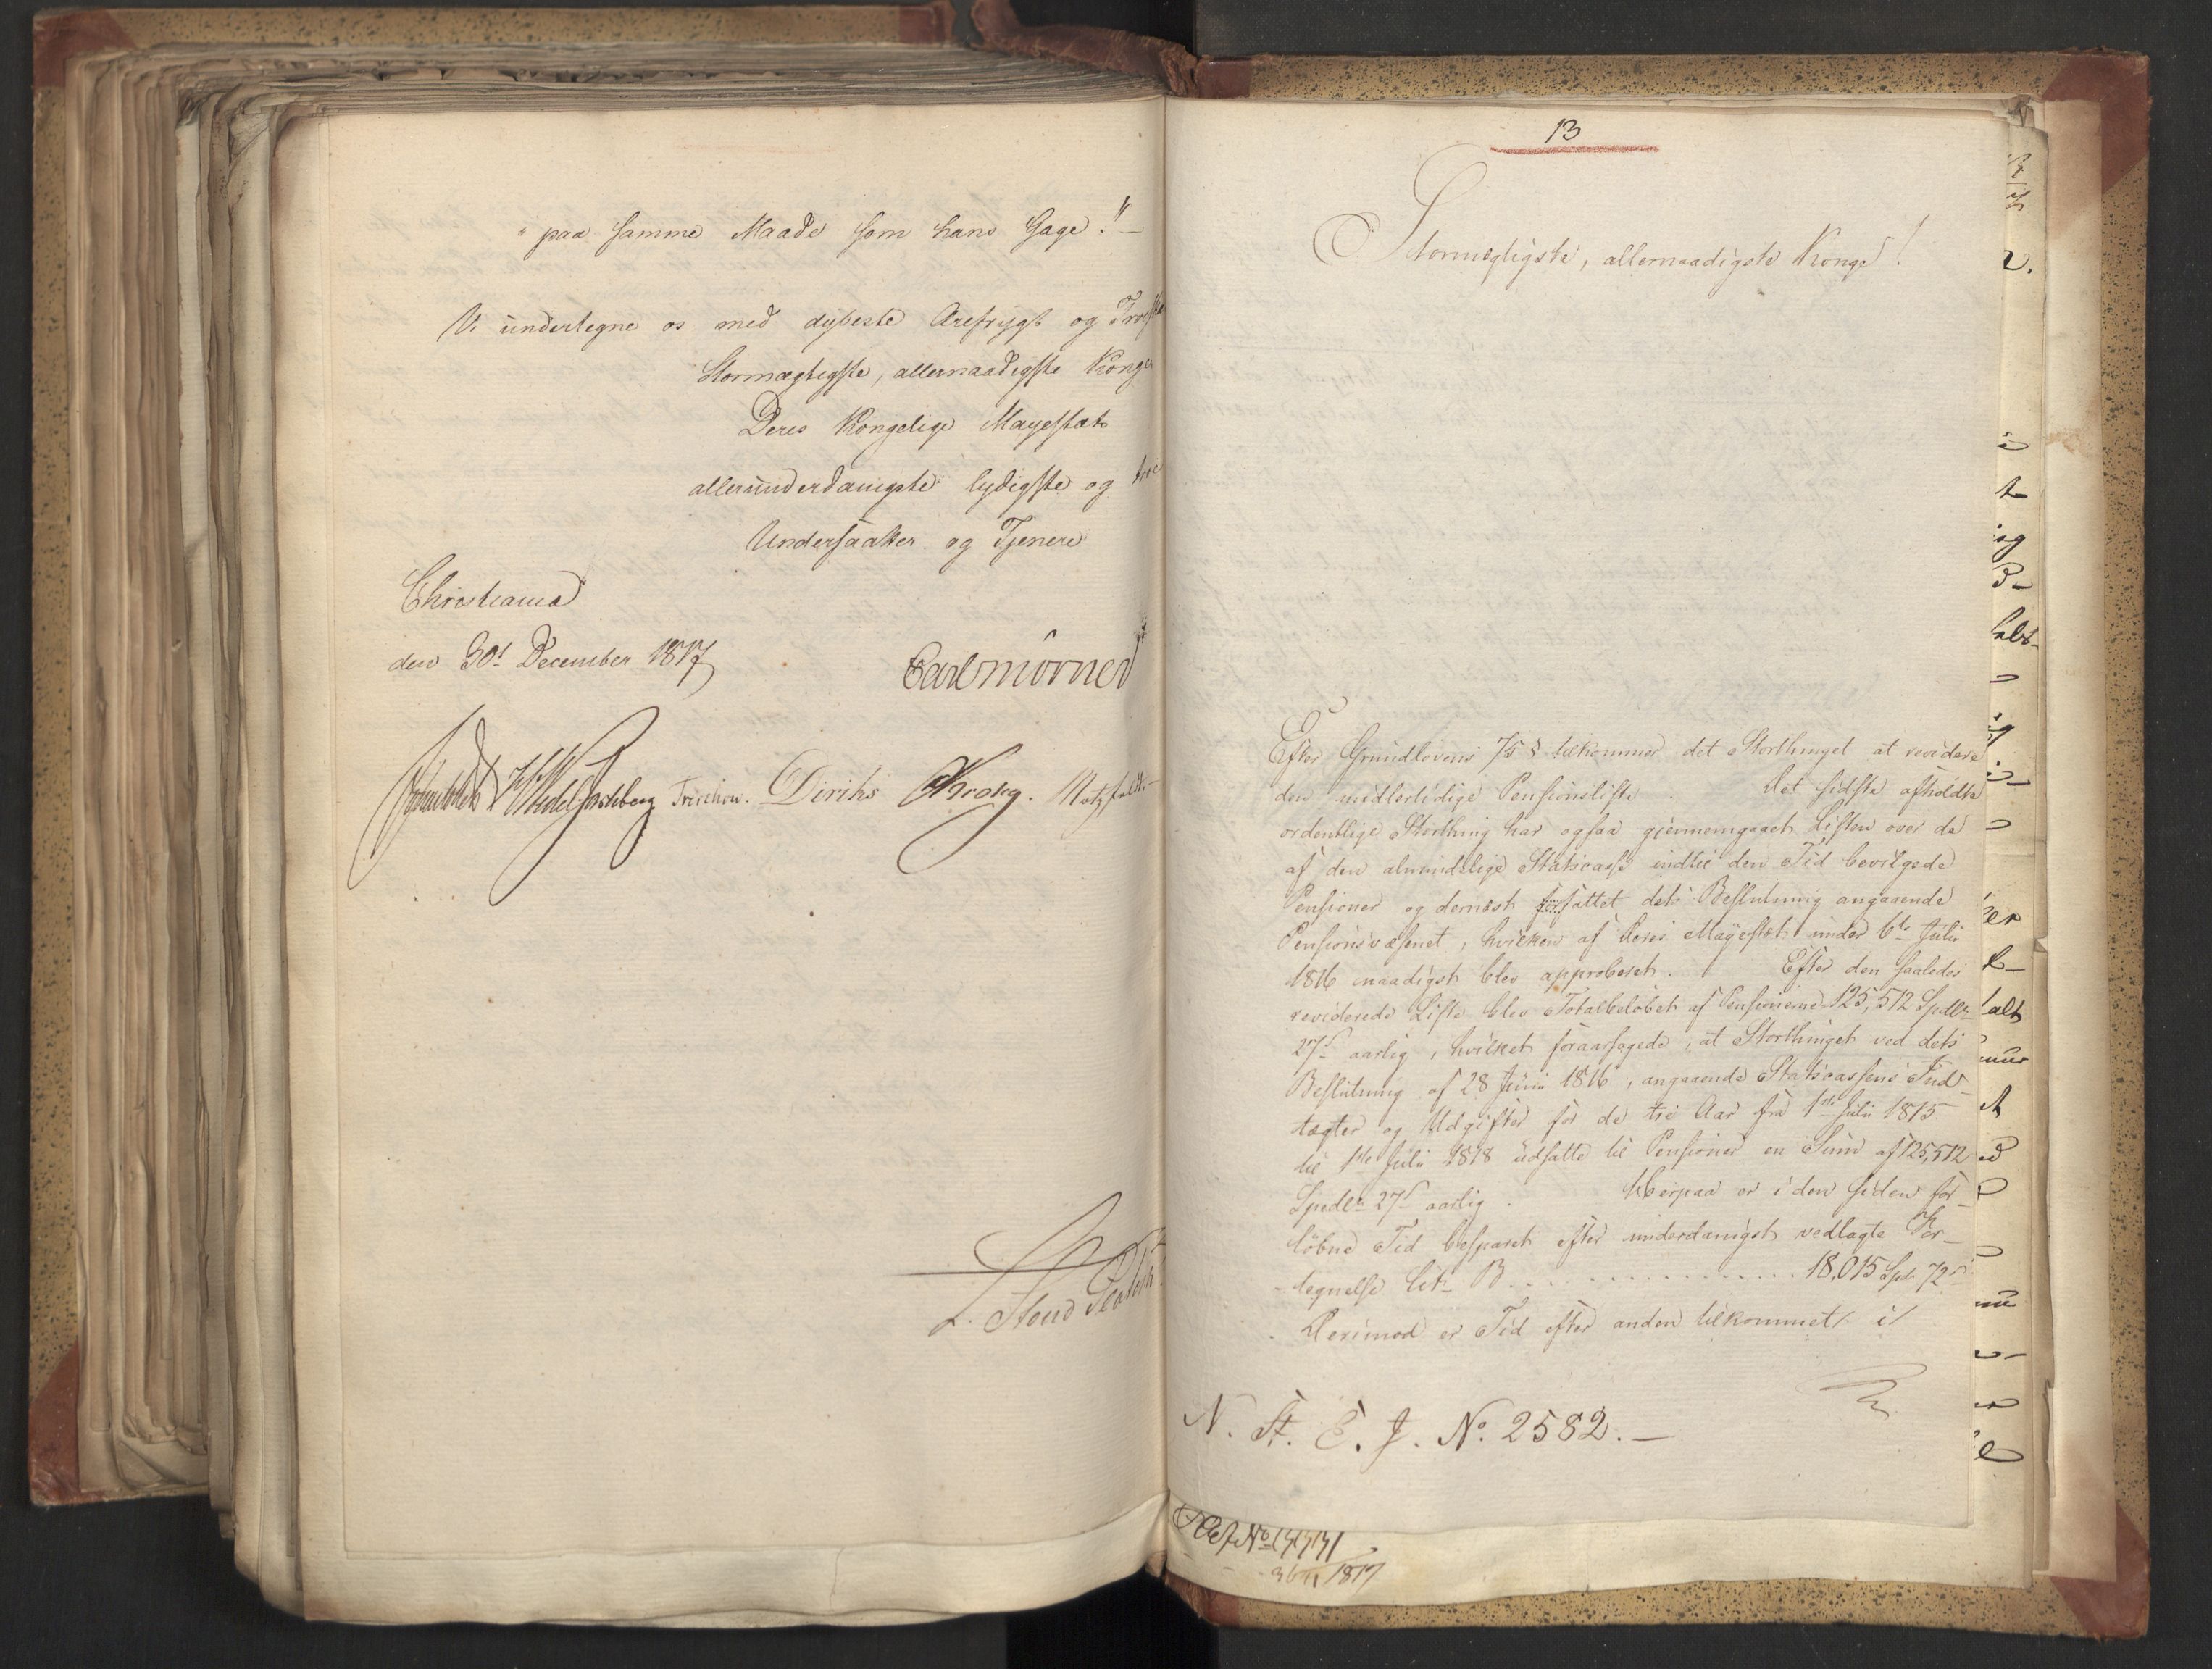 "paa samme Maade som hans Gage."-
Vi undertegne os med dybeste Ærefrygt og Troskab
Stormægtigste, allernaadigste Konge
Deres Kongelige Mayestæts
allerunderdanigste lydigste og troe
Undersaatter og Tjenere
Christiania
den 30t December 1817
Carl Mörner
Sommerhielm HWedel Jarlsberg Treschow. Diriks CKrohg. Motzfeldt.-
13
Stormægtigste, allernaadigste Konge!
Efter Grundlovens 75 § tilkommer det Storthinget at revidere
den midlertidige Pensionsliste. Det sidste afholdte
ordentlige Storthing har ogsaa gjennemgaaet Listen over de
af den almindelige Statscasse indtil den Tid bevilgede
Pensioner og dernæst forfattet dets Beslutning angaaende
Pensionsvæsenet, hvilken af Deres Mayestæt under 6te Julii
1816 naadigst blev approberet. Efter den saaledes
reviderede Liste blev Totalbeløbet af Pensionerne 125,512 Spdlr
27s aarlig, hvilket foraarsagede, at Storthinget ved dets
Beslutning af 28 Junii 1816, angaaende Statscassens Ind-
tægter og Udgifter for de tre Aar fra 1ste Julii 1815
til 1ste Julii 1818 udsatte til Pensioner en Sum af 125,512
Spedlr 27s aarlig. Herpaa er i den siden for-
løbne Tid besparet efter underdanigst vedlagte For-
tegnelse Litr B. . . . . . . . . . . . . . . . 18,015 Spd. 72s
Derimod er Tid efter anden tilkommet i
N. St. E. J. No. 2582.-
1817